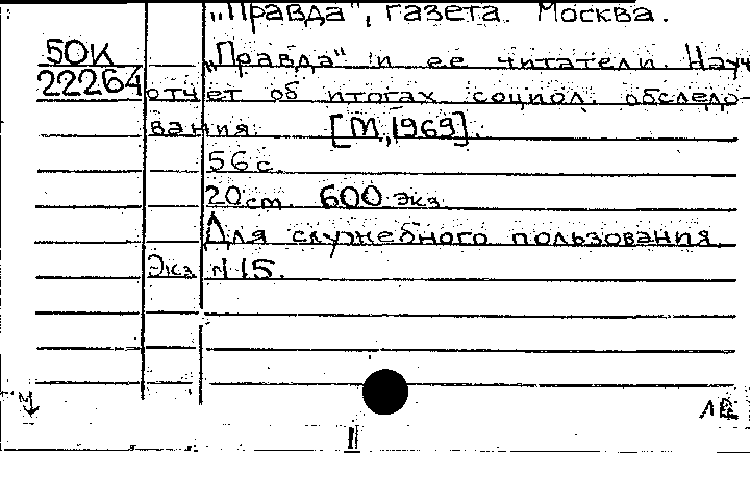 „Правда“, газета. Москва.
50К „Правда“ и ее читатели. Науч
22264 отчет об итогах социол. обследо-
вания. [М., 1969].
56 с.
20 см. 600 экз.
Для служебного пользования.
Экз. №15.